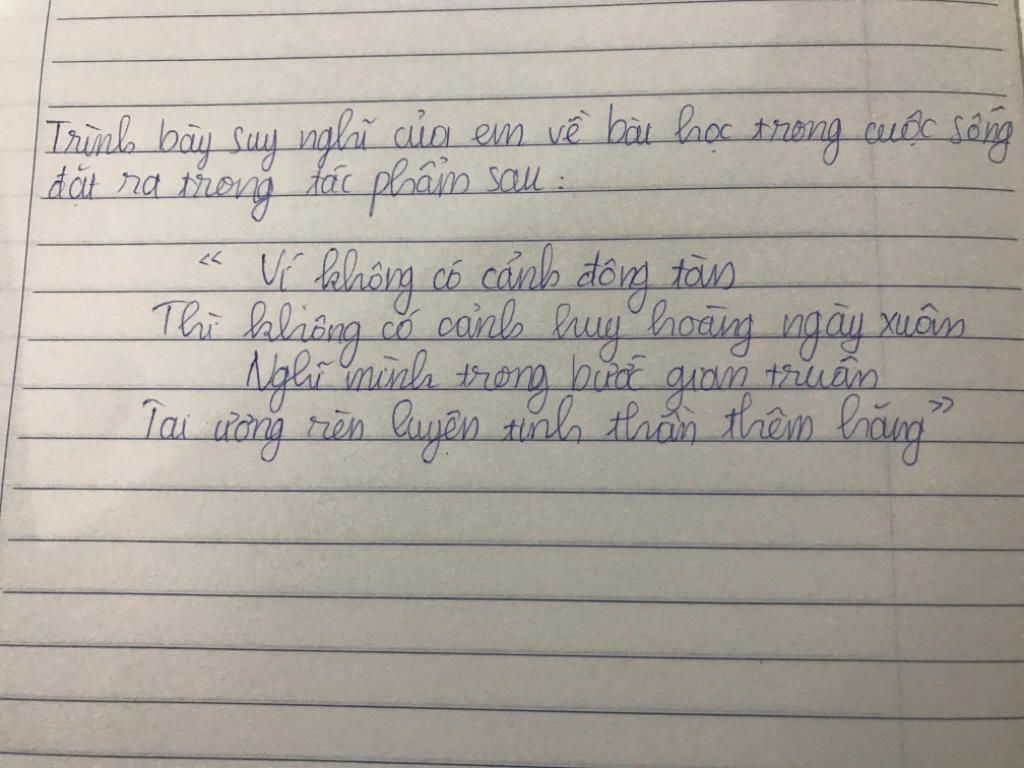 Trình bày suy nghĩ của em về bài học trong cuộc sống
đặt ra trong tác phẩm sau :
“ Ví không có cảnh đông tàn
Thì không có cảnh huy hoàng ngày xuân
Nghĩ mình trong bước gian truân
Tai ương rèn luyện tinh thần thêm hăng”